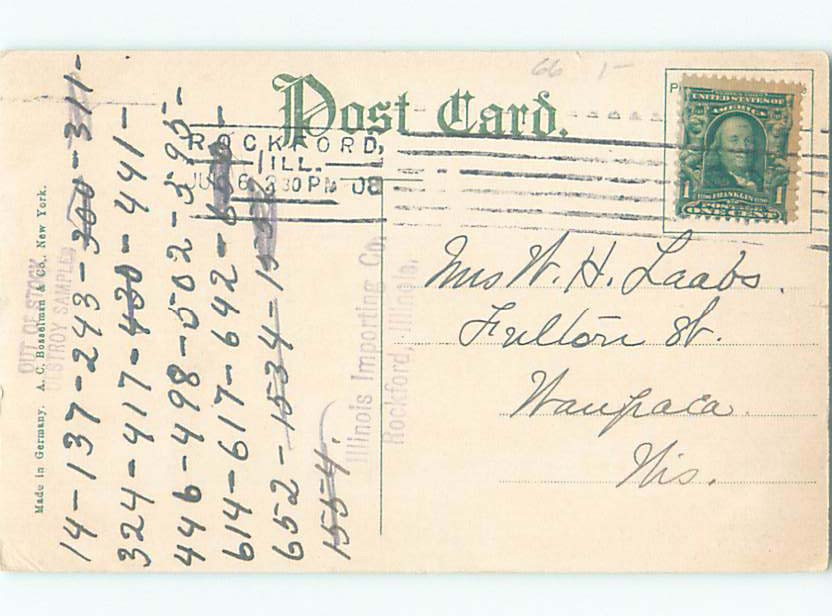 66 1-
Post Card.
ROCKFORD,
ILL.
6 230 PM 08
UNITED STATES OF
AMERICA
1 FRANKLIN 1
Mrs W. H. Laabs.
Fulton St.
Waupaca.
Wis.
Made in Germany. A. C. Bosselman & Co., New York.
OUT OF STOCK
DESTROY SAMPLE
14-137-243-300-311-
324-417-430-441-
446-498-502-595-
614-617-642-
652-1534-
1554.
Illinois Importing Co.
Rockford, Illinois.